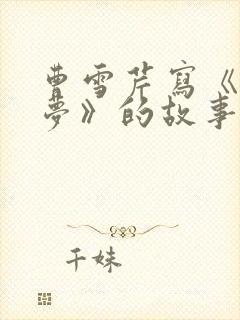 曹雪芹寫《
夢》的故事
千妹